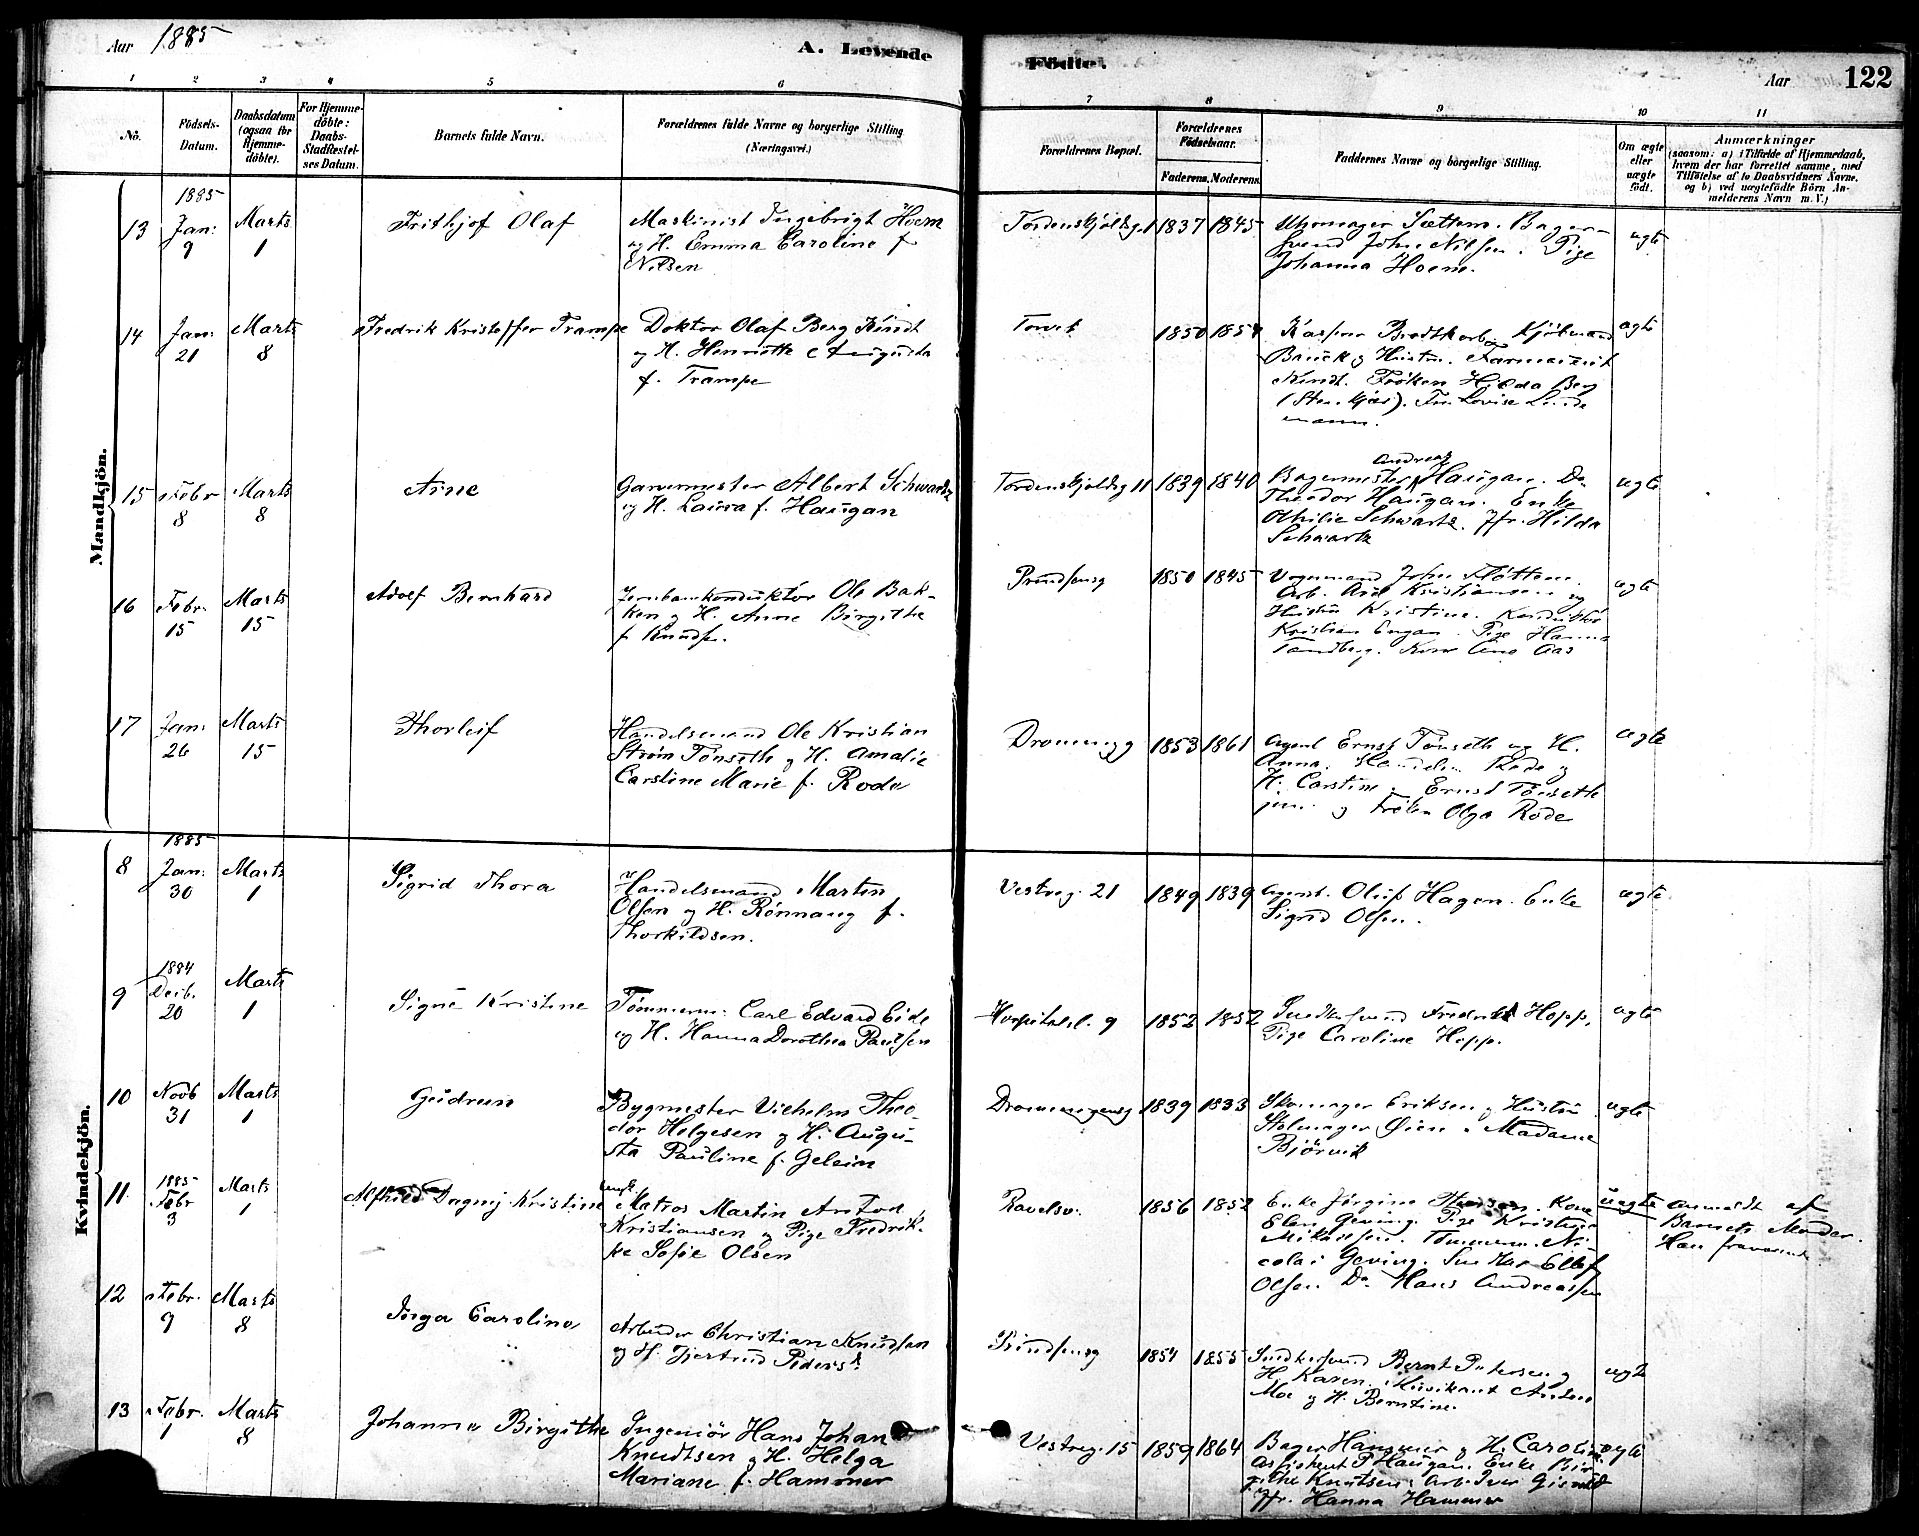 Aar 1885
A. Levende
Födte.
Aar
122
1 2 3 4 5 6 7 8 9 10 11
No.
Födsels-
Datum.
Daabsdatum
(ogsaa for
Hjemme-
döbte).
For Hjemme-
döbte:
Daabs-
Stadfæstel-
ses Datum.
Barnets fulde Navn.
Forældrenes fulde Navne og borgerlige Stilling
(Næringsvei.)
Forældrenes Bopæl.
Forældrenes
Födselsaar.
Faderens. Moderens.
Faddernes Navne og borgerlige Stilling.
Om ægte
eller
uægte
födt.
Anmærkninger
(saasom: a) i Tilfælde af Hjemmedaab,
hvem der har forrettet samme, med
Tilföielse af to Daabsvidners Navne,
og b) ved uægtefödte Börn An-
melderens Navn m. V.)
Mandkjön.
13
1885
Jan:
9
Marts
1
Frithjof Olaf
Maskinist Ingebrigt Hoem
og H. Emma Caroline f
Nilsen
Tordenskjoldsg. 1
1837
1845
Uhrmager Sættem. Bager-
svend John Nilsen. Pige
Johanna Hoem.
ægte
14
Jan:
21
Marts
8
Fredrik Kristoffer Trampe
Doktor Olaf Berg Kindt
og H. Henriette Augusta
f. Trampe
Torvet
1850
1854
Kaspar Brodtkorb Kjöbmand
Bauck og Hustru. Farmaceut
Kindt. Fröken Hilda Berg
(Stenkjær). Fru Lovise Linde
mann.
ægte
15
Febr
8
Marts
8
Arne
Garvermester Albert Schwartz
og H. Laura f. Haugan
Tordenskjoldsg 11
1839
1840
Andreas
Bagermester Haugan. Do
Theodor Haugan. Enke
Othilie Schwartz. Jfr. Hilda
Schwartz
ægte
16
Febr.
15
Marts
15
Adolf Bernhard
Jernbanekonduktör Ole Bak-
ken og H. Anne Birgithe
f. Knuds.
Prindsensg
1850
1845
Vognmand John Fløttem.
Arb. Kristiansen og
Hustru Kristine. Konduktör
Kristian Engan. Pige Hanna
Tandberg. Kone Ane Aas
ægte
17
Jan:
26
Marts
15
Thorleif
Handelsmand Ole Kristian
Strøm Tönseth og H. Amalie
Carstine Marie f. Rode
Dronningg
1853
1861
Agent Ernst Tönseth og H.
Anna. Rode og
H. Carstine. Ernst Tönseth
jun. og Frøken Olga Rode
ægte
Kvindekjön.
8
1885
Jan:
30
Marts
1
Sigrid Thora
Handelsmand Martin
Olsen og H. Rönnaug f.
Thorkildsen.
Vestreg. 21
1849
1839
Agent. Oluf Hagen. Enke
Sigrid Olsen.
ægte
9
1884
Decb.
20
Marts
1
Signe Kristine
Tömmerm: Carl Edvard Eide
og H. Hanna Dorothea Paulsen
Hospitalsl. 9
1852
1852
Snedkersvend Fredrik Hopp,
Pige Caroline Hopp.
ægte
10
Novb
31
Marts
1
Gudrun
Bygmester Vilhelm Theo-
dor Helgesen og H. Augu-
sta Pauline f. Gelein
Dronningensg
1839
1833
Skomager Eriksen og Hustru
Stolmager Øien. Madame
Björvik
ægte
11.
1885
Febr
3
Marts
1
Alfhild Dagny Kristine
Ungk
Matros Martin Anton
Kristiansen og Pige Fredrik-
ke Sofie Olsen
Ravelsv.
1856
1852
Enke Jörgine. Kone
Elen Geving. Pige
Mikalsen. Tömmerm. Ni-
colai Geving. Snedker Ellef
Olsen Do Hans Andreassen
uægte
Anmeldt af
Barnets Moder.
Han fraværende
12
Febr.
9
Marts
8
Inga Caroline
Arbeider Christian Knudsen
og H. Gjertrud Pedersd.
Prindsensg
1854
1855
Snedkersvend Bernt Petersen og
H. Karen. Musikant Anders
Moe og H. Berntine.
ægte
13
Febr.
1
Marts
8
Johanna Birgithe
Ingeniör Hans Johan
Knudtsen og H. Helga
Mariane f. Hammer
Vestreg. 15
1859
1864
Bager Hammer og H. Caroline
Assistent P Haugan. Enke Bir-
githe Knutsen. Arb. Iver
Jfr. Hanna Hammer
ægte